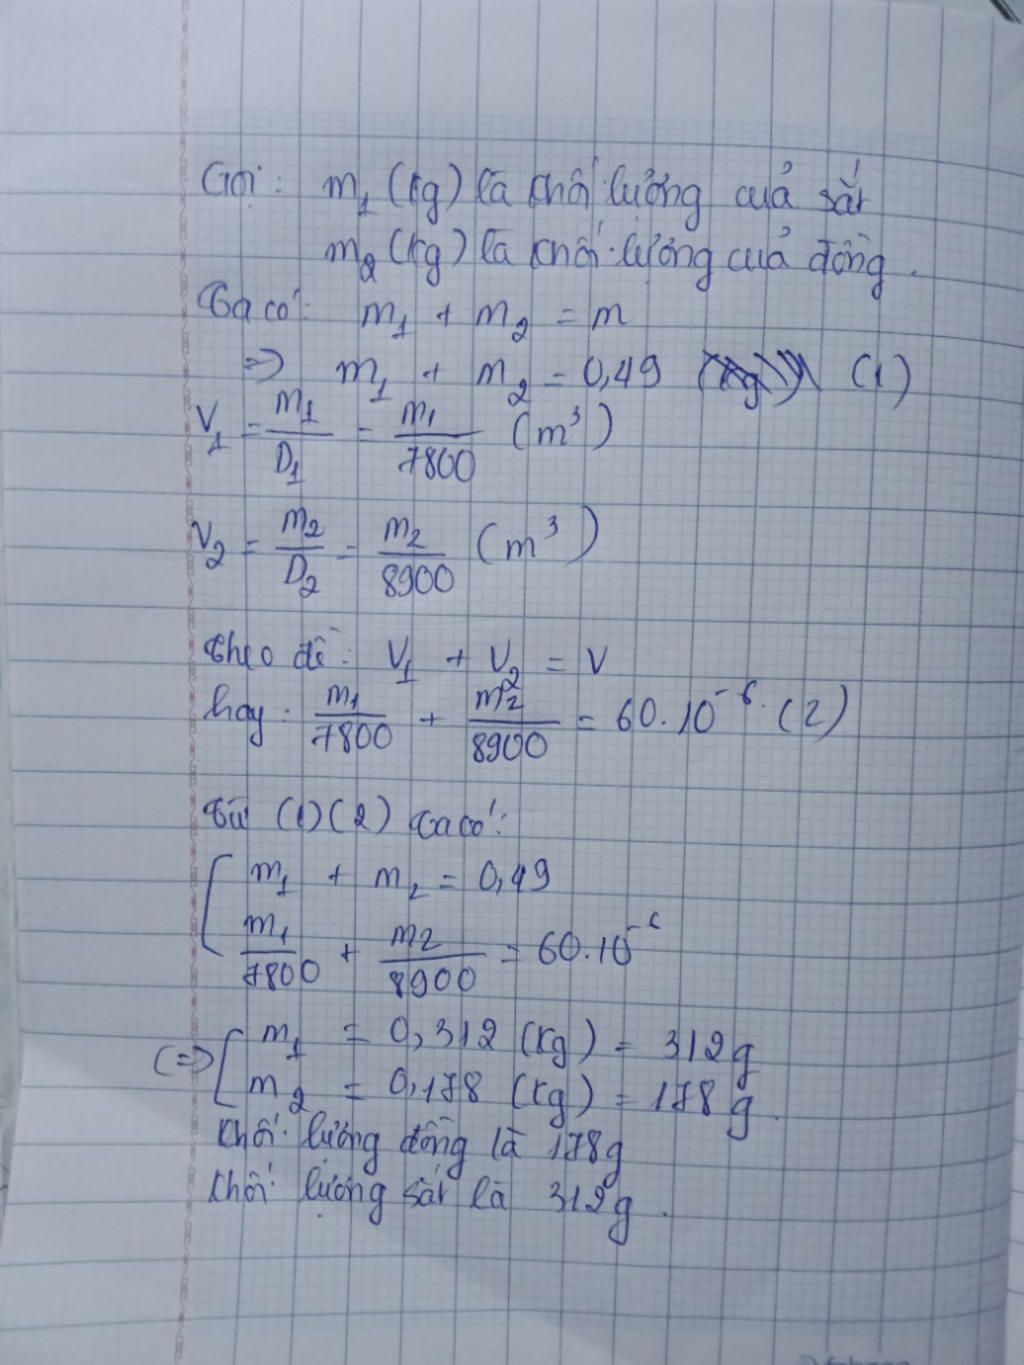 Gọi: m₁ (kg) là khối lượng của sắt
m₂ (kg) là khối lượng của đồng.
Ta có: m₁ + m₂ = m
=> m₁ + m₂ = 0,49 (1)
V₁ = m₁/D₁ = m₁/7800 (m³)
V₂ = m₂/D₂ = m₂/8900 (m³)
Theo đề: V₁ + V₂ = V
hay: m₁/7800 + m₂/8900 = 60.10⁻⁶. (2)
Từ (1)(2) ta có:
m₁ + m₂ = 0,49
m₁/7800 + m₂/8900 = 60.10⁻⁶
(=>) m₁ = 0,312 (kg) = 312g
m₂ = 0,178 (kg) = 178g.
Khối lượng đồng là 178g
Khối lượng sắt là 312g.